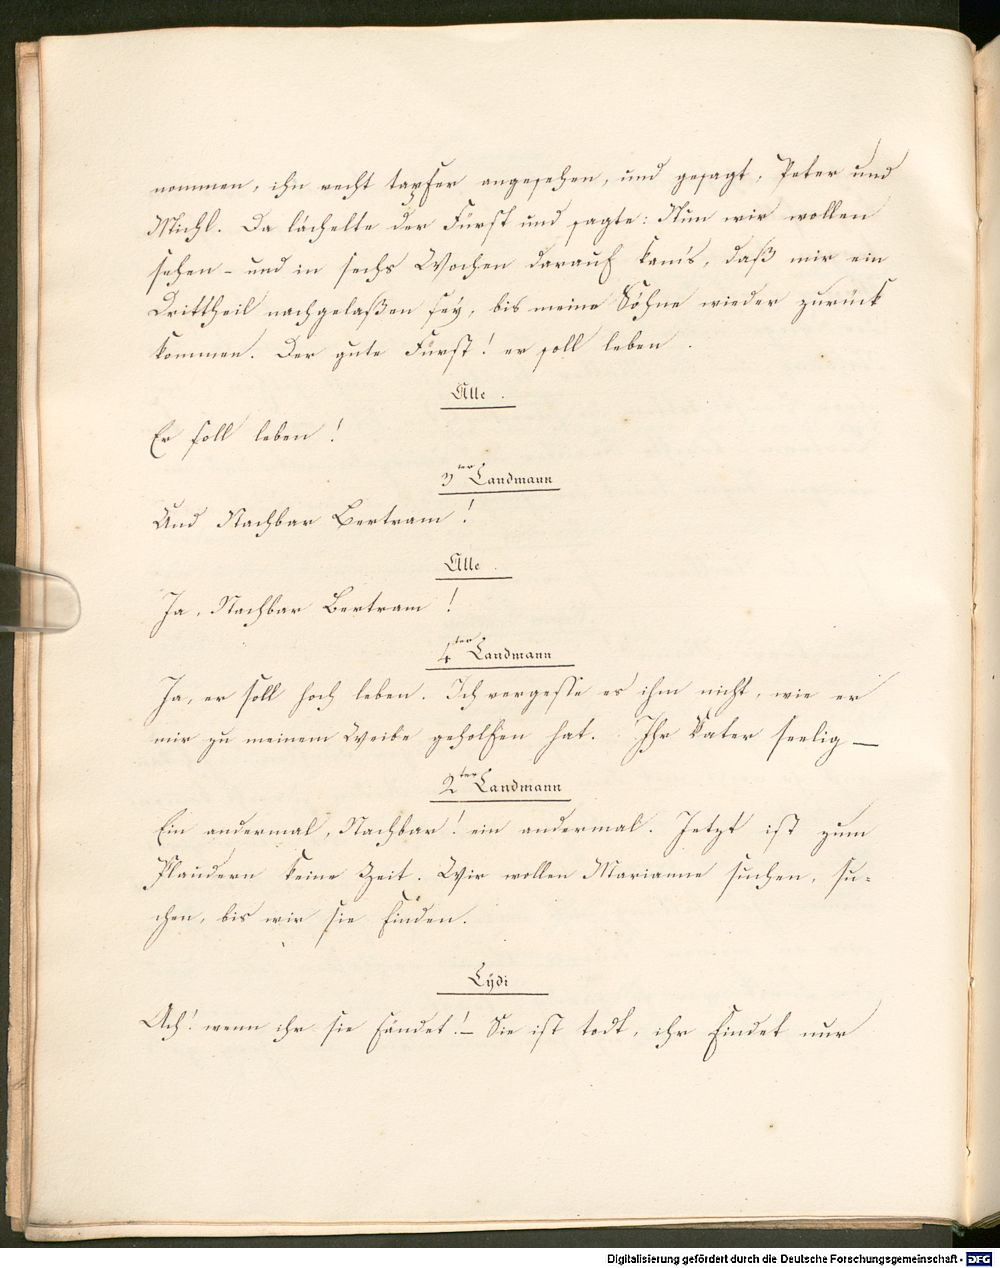 nommen, ihn recht tapfer angesehen, und gesagt, Peter und
Michl. Da lächelte der Fürst und sagte: Nun wir wollen
sehen - und in sechs Wochen darauf kam's, daß mir ein
Drittheil nachgelaßen sey, bis meine Söhne wieder zurück
kommen. Der gute Fürst! er soll leben.
Alle.
Er soll leben!
3ter Landmann
Und Nachbar Bertram!
Alle.
Ja, Nachbar Bertram!
4ter Landmann
Ja, er soll hoch leben. Ich vergesse es ihm nicht, wie er
mir zu meinem Weibe geholfen hat. Ihr Vater seelig —
2ter Landmann
Ein andermal, Nachbar! ein andermal. Jetzt ist zum
Plaudern keine Zeit. Wir wollen Marianne suchen, su-
chen, bis wir sie finden.
Lydi
Ach! wenn ihr sie fändet! - Sie ist todt, ihr findet nur
Digitalisierung gefördert durch die Deutsche Forschungsgemeinschaft - DFG